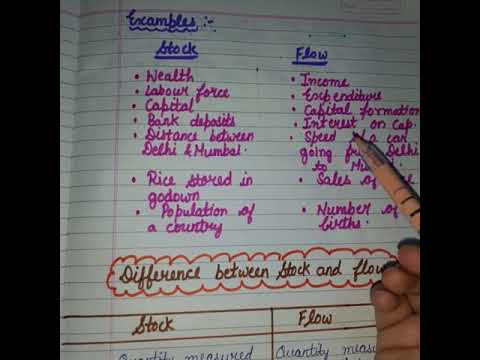 Examples :-
Stock Flow
• Wealth • Income
• Labour force • Expenditure
• Capital • Capital formation
• Bank deposits • Interest on Cap.
• Distance between • Speed a car
Delhi & Mumbai. going Delhi
to
• Rice stored in • Sales of
godown
• Population of • Number of
a country births.
Difference between Stock and flow
Stock Flow
Quantity measured Quantity measured